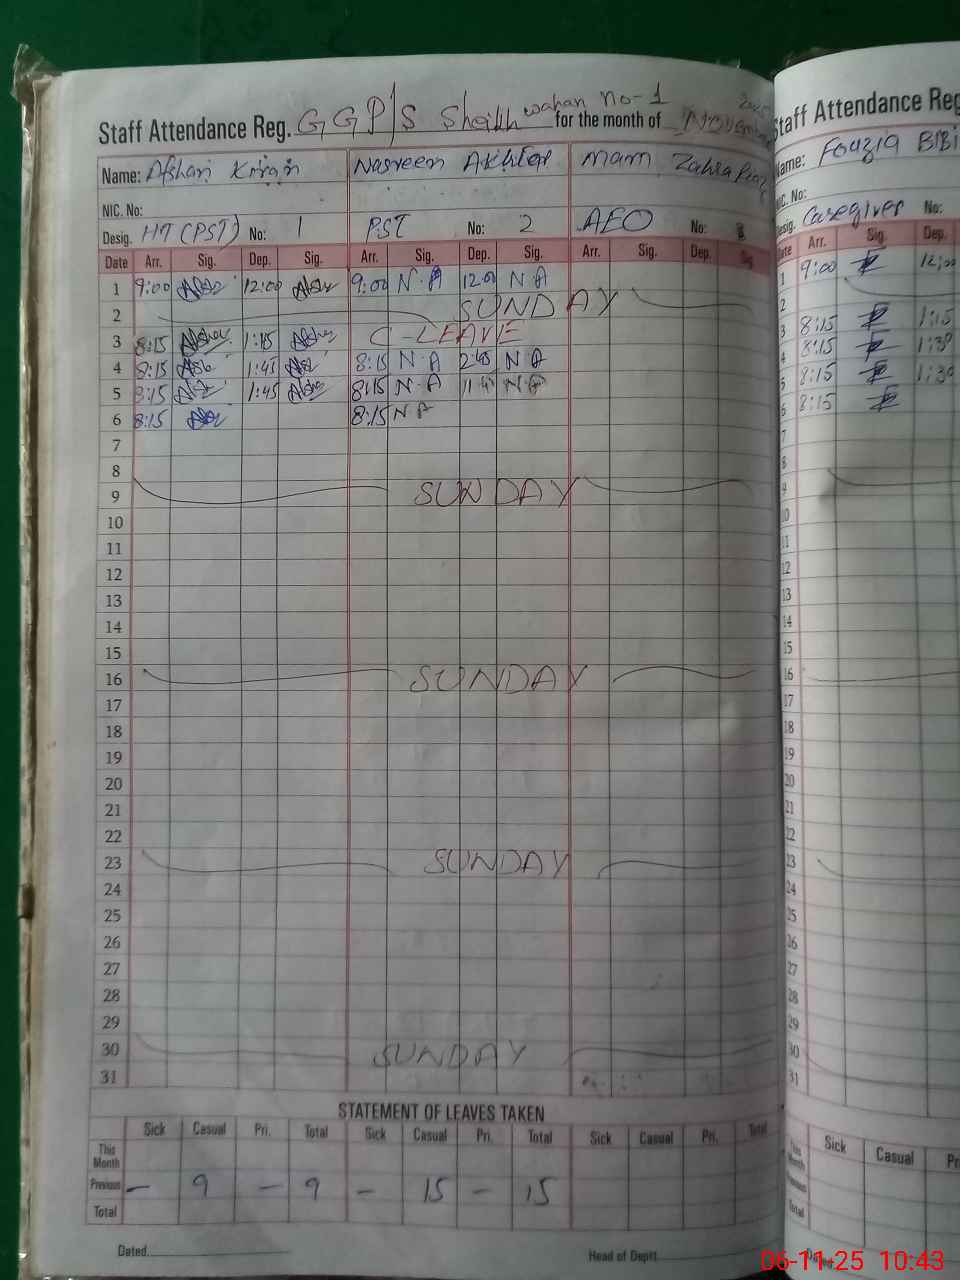 Staff Attendance Reg. GGP/S Sheikh wahan no-1 for the month of November 2025
Name: Afshan Kiran Nasreen Akhter Mam Zahra Riaz
NIC. No:
Desig. HT (PST) No: 1 PST No: 2 AEO No:
Date Arr. Sig. Dep. Sig. Arr. Sig. Dep. Sig. Arr. Sig. Dep. Sig
1 9:00 12:00 9:00 N.A 12:00 N A
2 SUNDAY
3 8:15 1:45 C-LEAVE
4 8:15 1:45 8:15 N A 2:45 N A
5 8:15 1:45 8:15 N.A 1:45 N A
6 8:15 8:15 N A
7
8
9 SUNDAY
10
11
12
13
14
15
16 SUNDAY
17
18
19
20
21
22
23 SUNDAY
24
25
26
27
28
29
30 SUNDAY
31
STATEMENT OF LEAVES TAKEN
Sick Casual Pri. Total Sick Casual Pri. Total Sick Casual Pri. Total
This Month
Previous - 9 - 9 - 15 - 15
Total
Dated Head of Deptt
Staff Attendance Reg
Name: Fouzia BiBi
NIC. No:
Desig. Caregiver No:
Date Arr. Sig. Dep.
1 9:00 12:00
2
3 8:15 1:15
4 8:15 1:30
5 8:15 1:30
6 8:15
7
8
9
10
11
12
13
14
15
16
17
18
19
20
21
22
23
24
25
26
27
28
29
30
31
Sick Casual Pri
This Month
Previous
Total
Dated
06-11-25 10:43